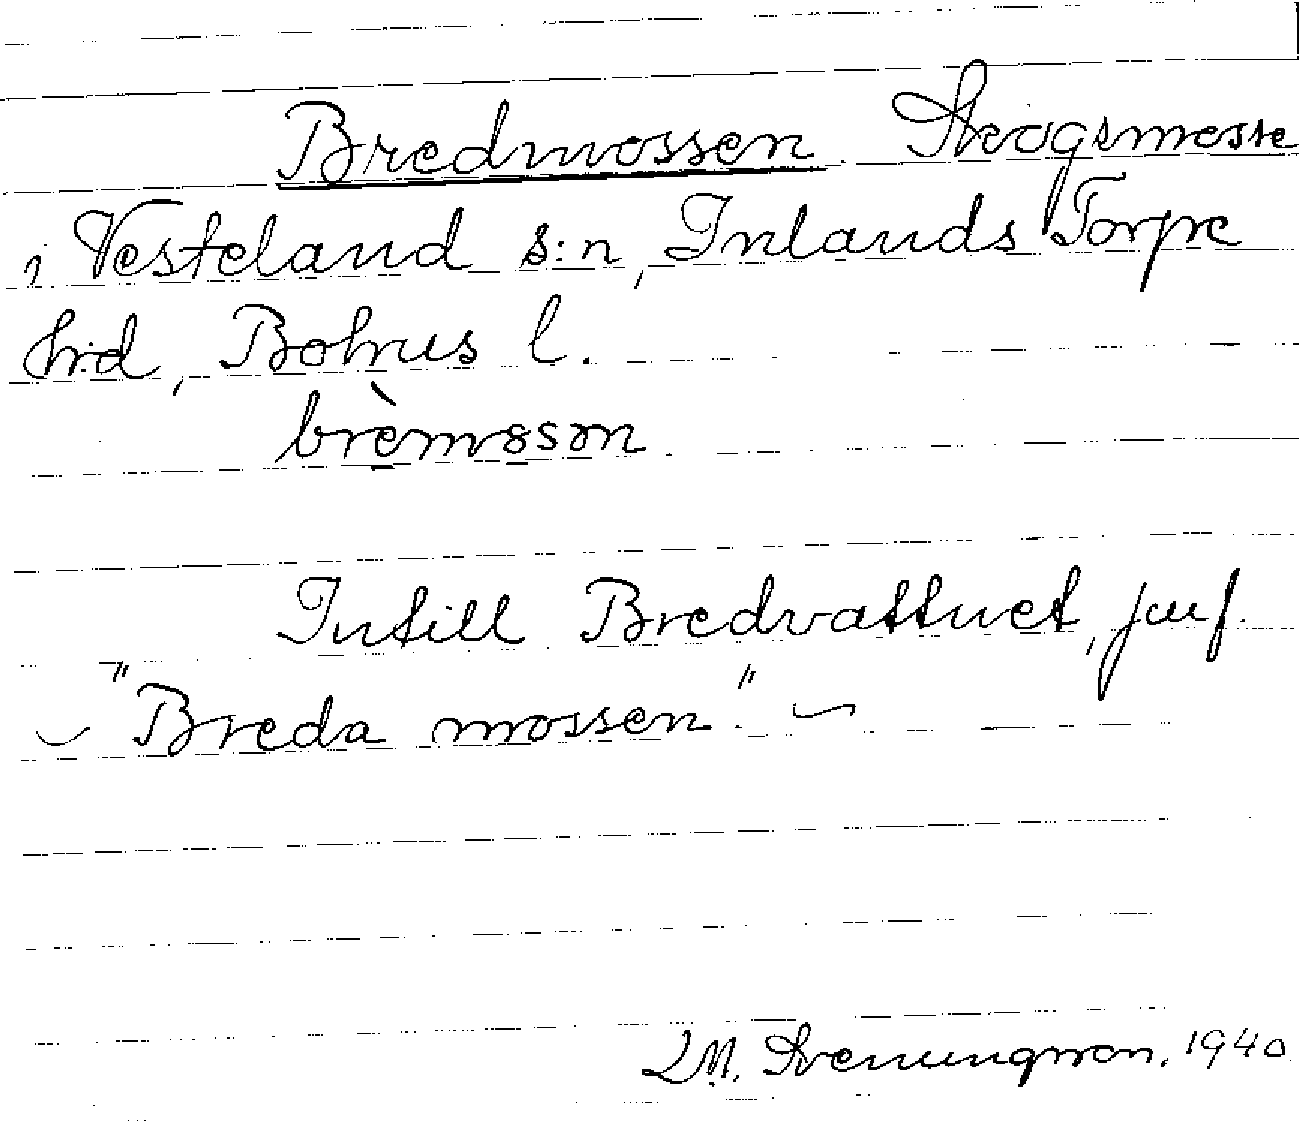 Bredmossen. Skogsmosse
i Vesteland s:n, Inlands Torpe
h:d, Bohus l.
brèmøson.
Intill Bredvattnet, jmf.
"Breda mossen".
LM. Svenungsson. 1940